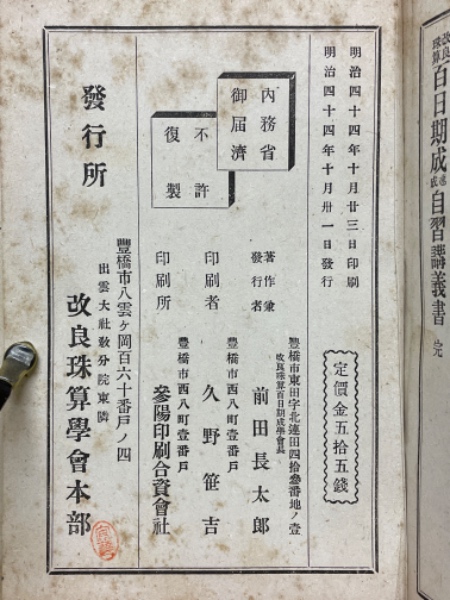 改良
珠算
百日期成
自習講義書
完
明治四十四年十月廿三日印刷
明治四十四年十月卅一日發行
定價金五拾五錢
內務省
御届濟
不許
復製
豐橋市東田字北連田四拾參番地ノ壹
改良珠算百日期成學會長
著作兼
發行者
前田長太郎
豐橋市西八町壹番戶
印刷者
久野笹吉
豐橋市西八町壹番戶
印刷所
參陽印刷合資會社
發行所
豐橋市八雲ヶ岡百六十番戶ノ四
出雲大社教分院東隣
改良珠算學會本部